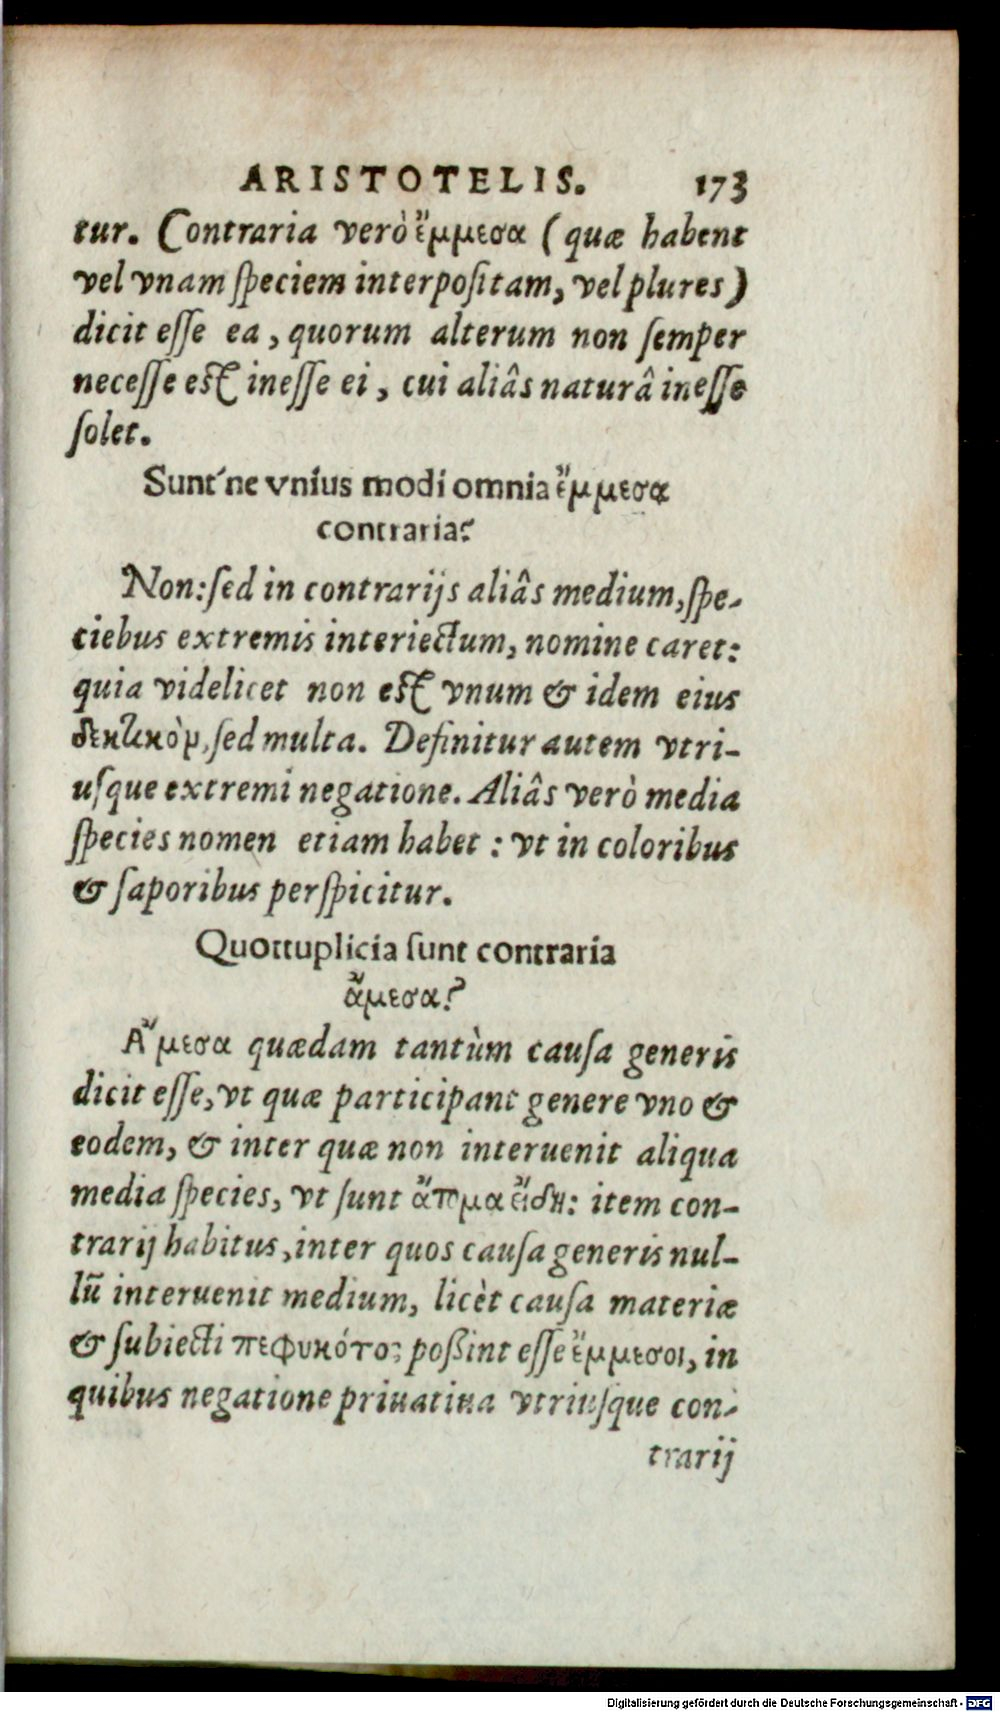 ARISTOTELIS. 173
tur. Contraria verò ἔμμεσα (quæ habent
vel vnam speciem interpositam, vel plures)
dicit esse ea, quorum alterum non semper
necesse est inesse ei, cui aliâs naturâ inesse
solet.
Sunt'ne vnius modi omnia ἔμμεσα
contraria?
Non: sed in contrarijs aliâs medium, spe-
ciebus extremis interiectum, nomine caret:
quia videlicet non est vnum & idem eius
δεκτικὸν, sed multa. Definitur autem vtri-
usque extremi negatione. Aliâs verò media
species nomen etiam habet: vt in coloribus
& saporibus perspicitur.
Quottuplicia sunt contraria
ἄμεσα?
Ἄμεσα quædam tantùm causa generis
dicit esse, vt quæ participant genere vno &
eodem, & inter quæ non interuenit aliqua
media species, vt sunt ἄτομα εἴδη: item con-
trarij habitus, inter quos causa generis nul-
lū interuenit medium, licèt causa materiæ
& subiecti πεφυκότος poßint esse ἔμμεσοι, in
quibus negatione priuatiua vtriusque con-
trarij
Digitalisierung gefördert durch die Deutsche Forschungsgemeinschaft - DFG